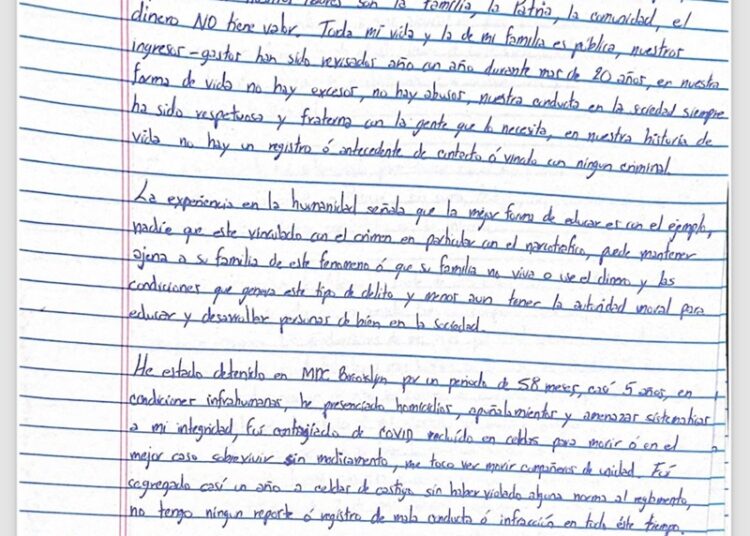 son la familia, la Patria, la comunidad, el
dinero NO tiene valor. Toda mi vida y la de mi familia es pública, nuestros
ingresos-gastos han sido revisados año con año durante mas de 20 años, en nuestra
forma de vida no hay excesos, no hay abusos, nuestra conducta en la sociedad siempre
ha sido respetuosa y fraterna con la gente que lo necesita, en nuestra historia de
vida no hay un registro ó antecedente de contacto ó vinculo con ningun criminal.
La experiencia en la humanidad señala que la mejor forma de educar es con el ejemplo,
nadie que este vinculado con el crimen en particular con el narcotrafico, puede mantener
ajena a su familia de este fenomeno ó que su familia no viva o use el dinero y las
condiciones que genera este tipo de delito y menos aun tener la autoridad moral para
educar y desarrollar personas de bien en la sociedad.
He estado detenido en MDC Brooklyn por un periodo de 58 meses, casí 5 años, en
condiciones infrahumanas, he presenciado homicidios, apuñalamientos y amenazas sistematicas
a mi integridad, Fuí contagiado de COVID recluído en celdas para morir ó en el
mejor caso sobrevivir sin medicamento, me toco ver morir compañeros de unidad. Fuí
segregado casí un año a celdas de castigo sin haber violado alguna norma al reglamento,
no tengo ningun reporte ó registro de mala conducta ó infracción en todo éste tiempo.